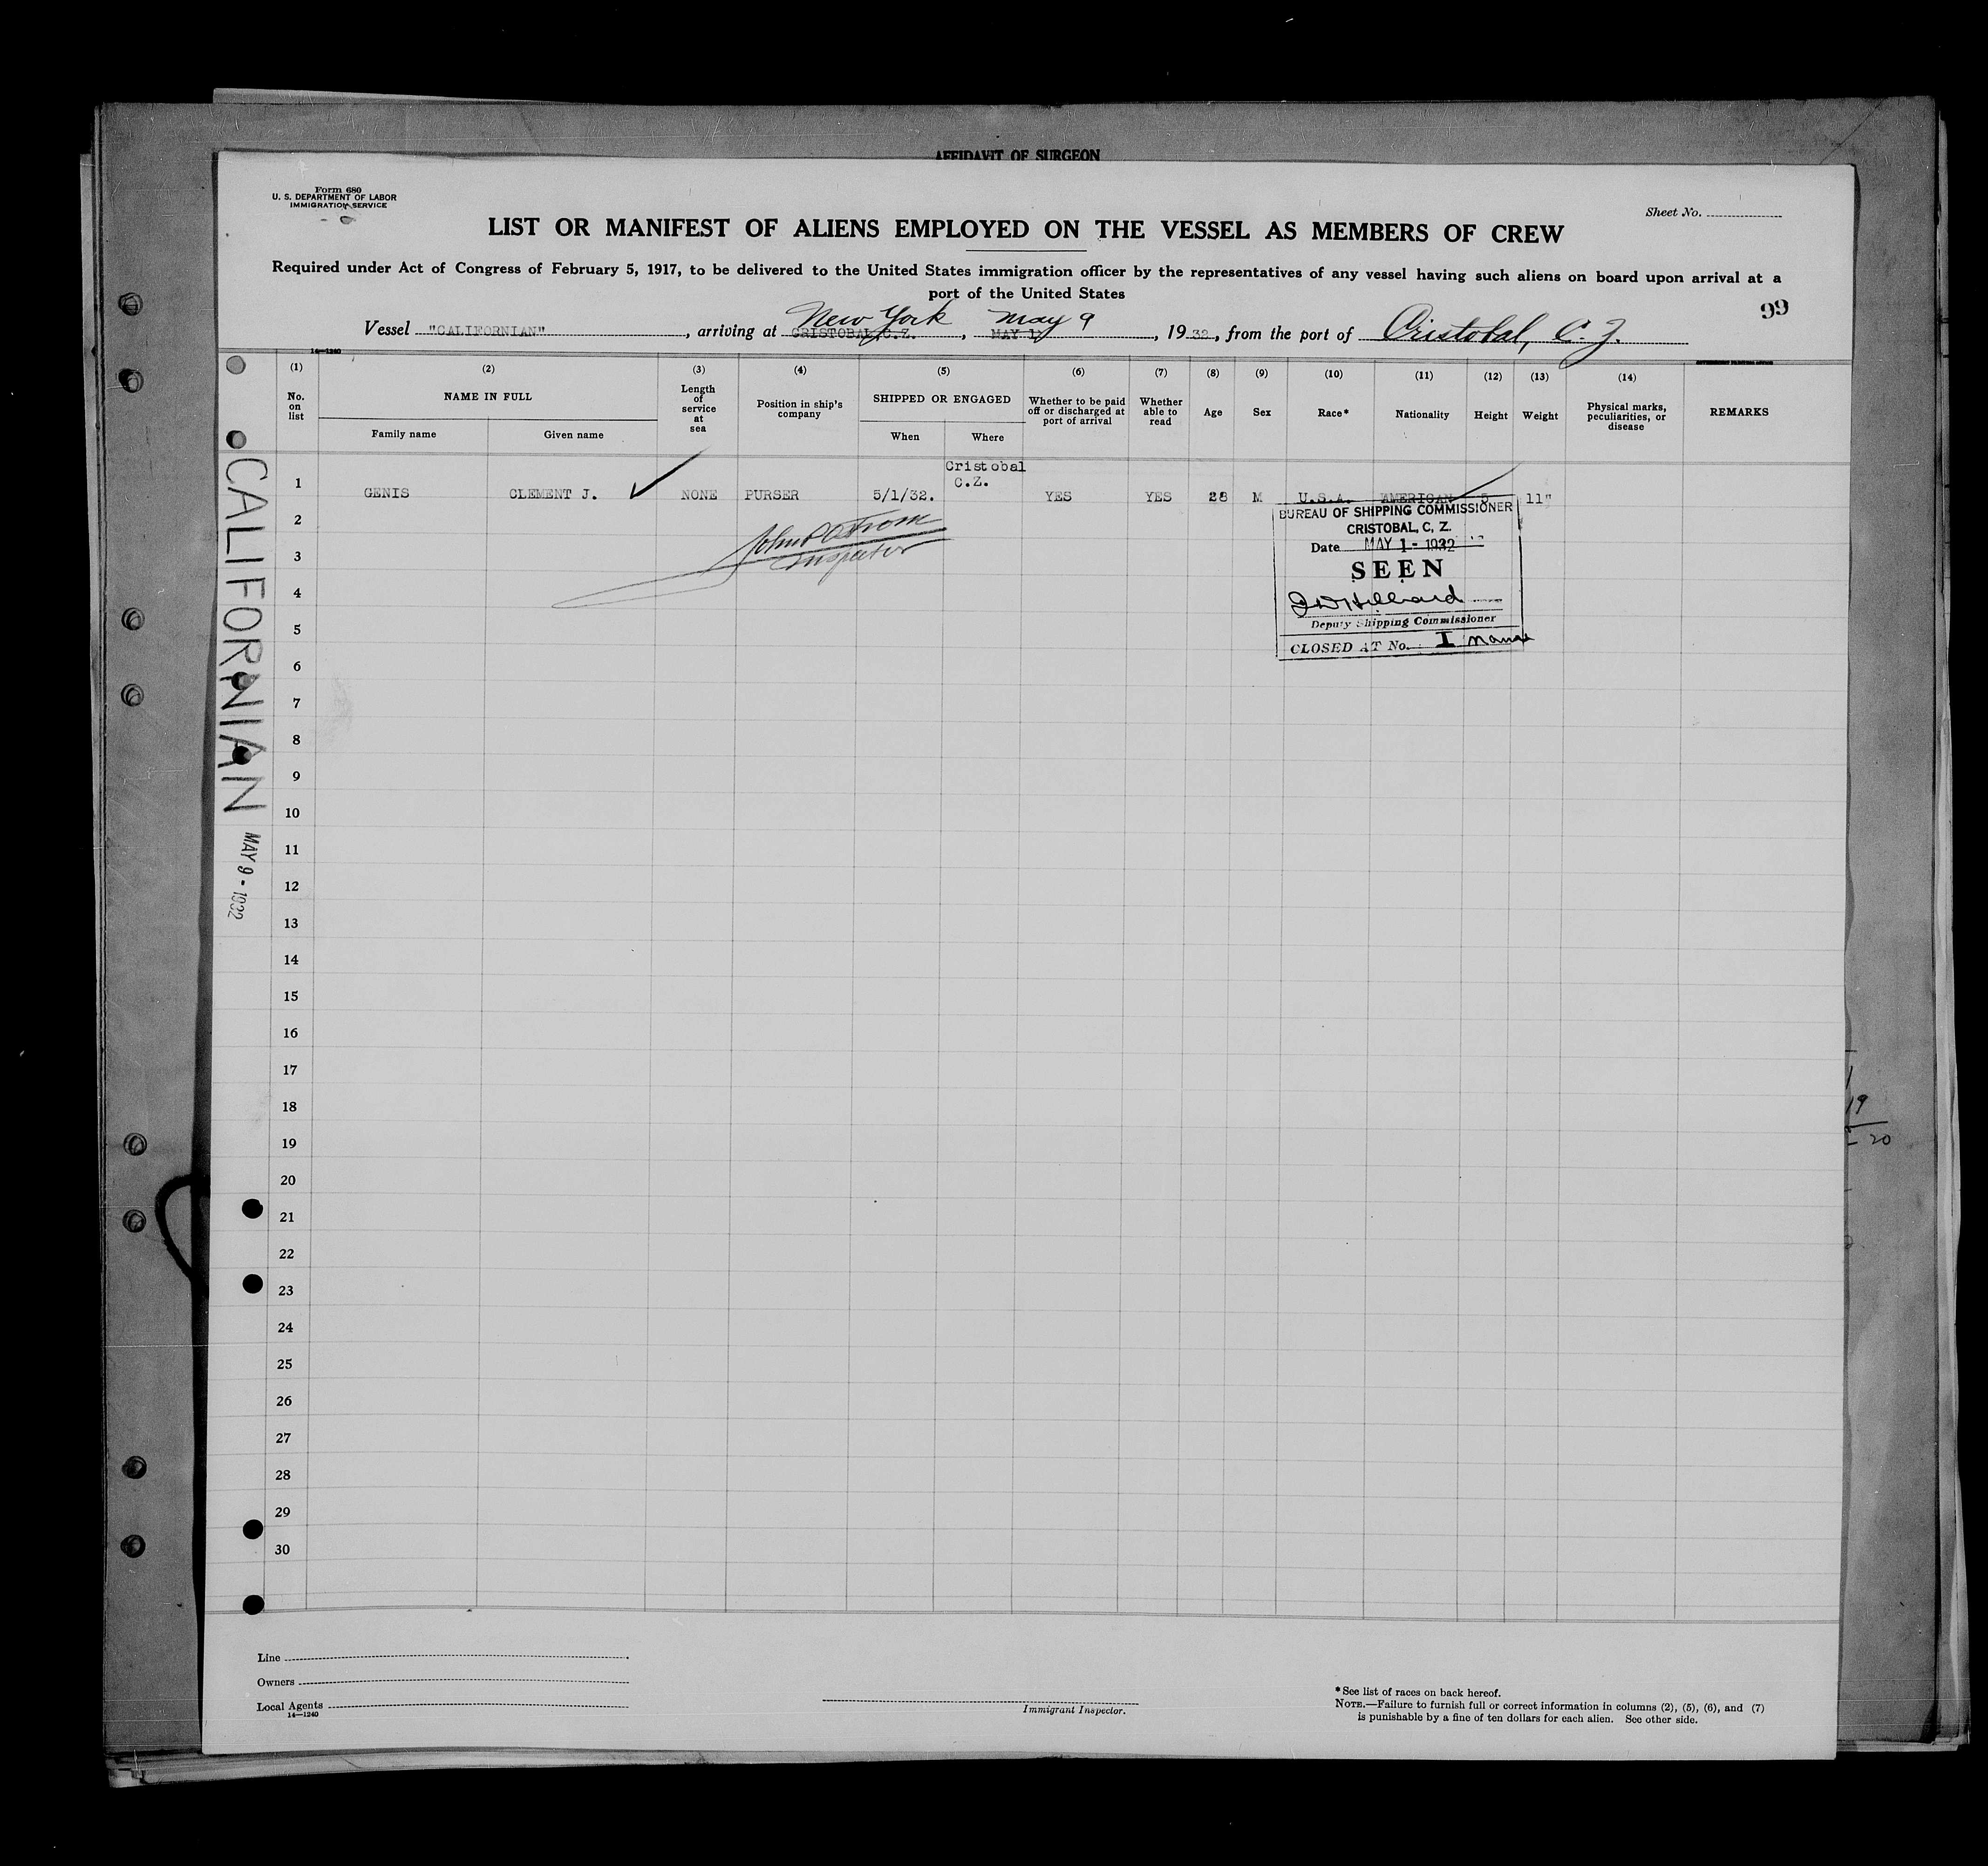 AFFIDAVIT OF SURGEON
Form 680
U. S. DEPARTMENT OF LABOR
IMMIGRATION SERVICE
Sheet No.
LIST OR MANIFEST OF ALIENS EMPLOYED ON THE VESSEL AS MEMBERS OF CREW
Required under Act of Congress of February 5, 1917, to be delivered to the United States immigration officer by the representatives of any vessel having such aliens on board upon arrival at a
port of the United States
99
New York May 9
Vessel "CALIFORNIAN", arriving at CRISTOBAL, C.Z., MAY 1, 1932, from the port of Cristobal, C. Z.
14—1240
(1) (2) (3) (4) (5) (6) (7) (8) (9) (10) (11) (12) (13) (14)
No. on list NAME IN FULL Length of service at sea Position in ship's company SHIPPED OR ENGAGED Whether to be paid off or discharged at port of arrival Whether able to read Age Sex Race* Nationality Height Weight Physical marks, peculiarities, or disease REMARKS
Family name Given name When Where
Cristobal
C.Z.
1 GENIS CLEMENT J. NONE PURSER 5/1/32. YES YES 28 M U.S.A. AMERICAN 5 11"
BUREAU OF SHIPPING COMMISSIONER
CRISTOBAL, C. Z.
Date MAY 1 - 1932
SEEN
Hilliard
Deputy Shipping Commissioner
CLOSED AT No. I name
John
Inspector
2
3
4
5
6
7
8
9
10
11
12
13
14
15
16
17
18
19
20
21
22
23
24
25
26
27
28
29
30
CALIFORNIAN
MAY 9 - 1932
19
20
Line
Owners
Local Agents
14—1240
Immigrant Inspector.
*See list of races on back hereof.
NOTE.—Failure to furnish full or correct information in columns (2), (5), (6), and (7)
is punishable by a fine of ten dollars for each alien. See other side.